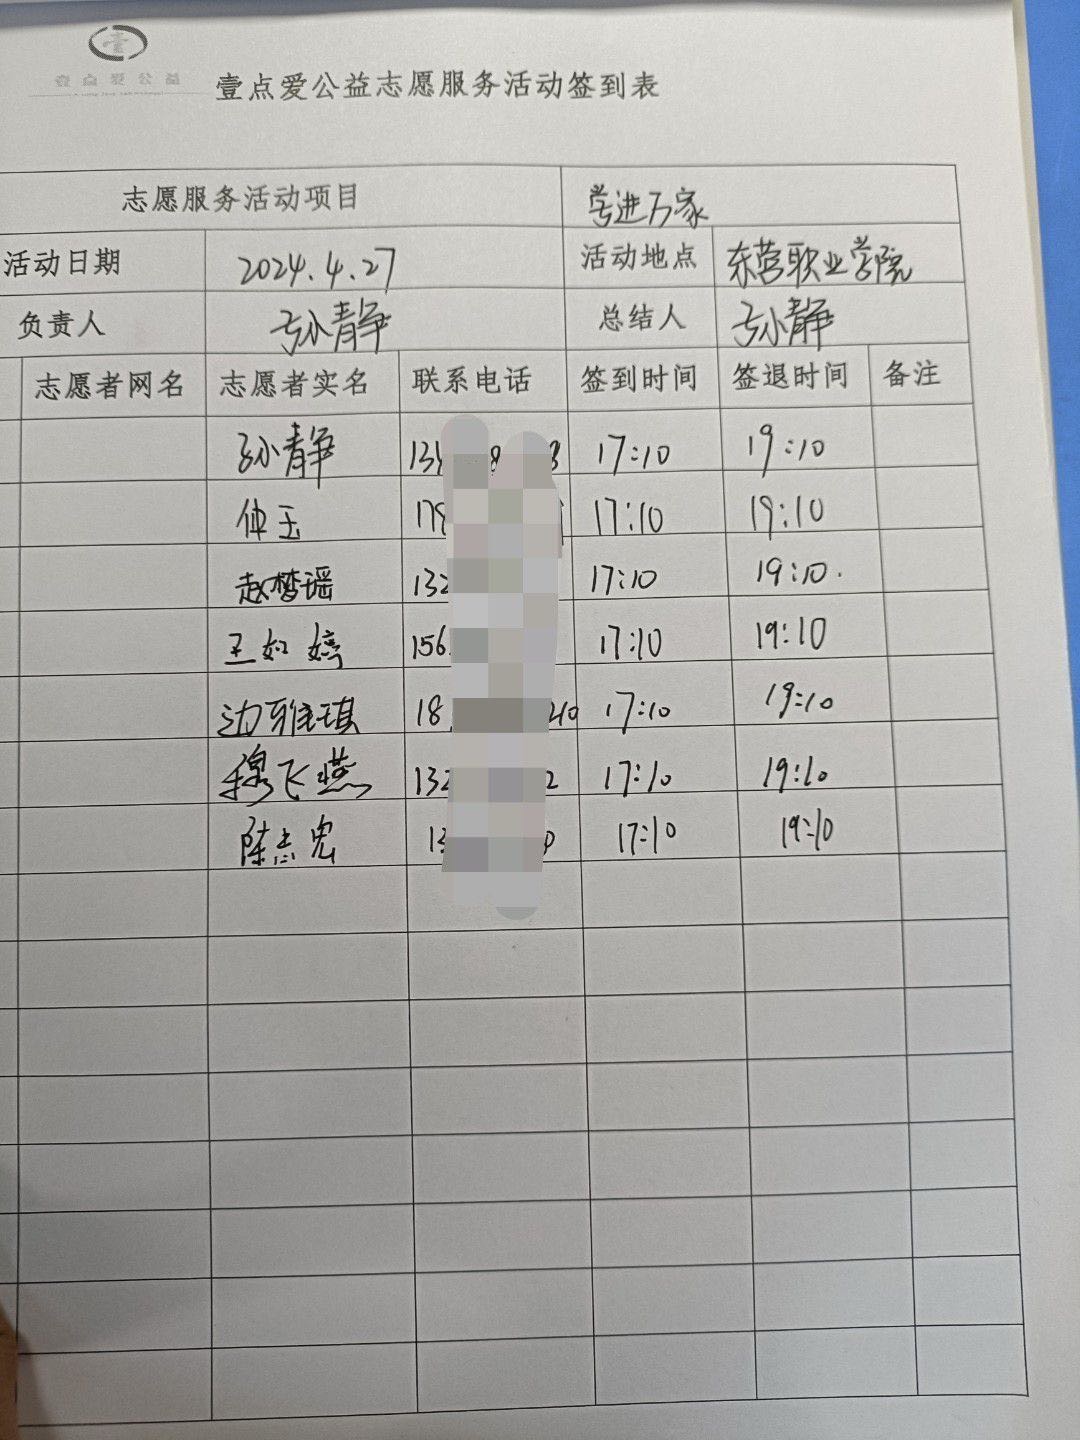 壹
壹点爱公益
壹点爱公益志愿服务活动签到表
志愿服务活动项目 学进万家
活动日期 2024.4.27 活动地点 东营职业学院
负责人 孙静 总结人 孙静
志愿者网名 志愿者实名 联系电话 签到时间 签退时间 备注
孙静 134 8 8 17:10 19:10
仲玉 178 17:10 19:10
赵梦瑶 132 17:10 19:10.
王如婷 156 17:10 19:10
边雅琪 18 210 17:10 19:10
穆飞燕 132 2 17:10 19:10
陈志宪 13 17:10 19:10